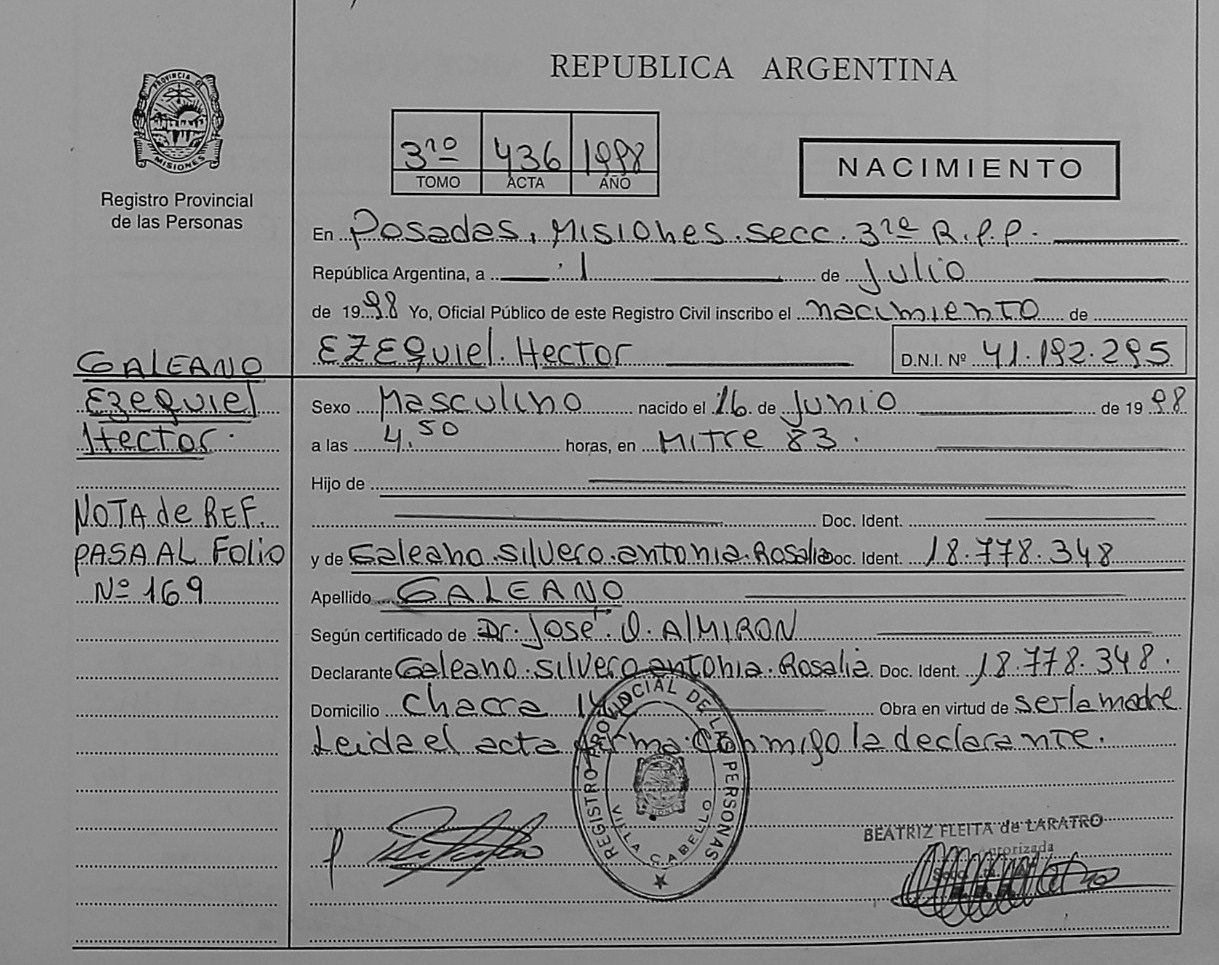 REPUBLICA ARGENTINA
PROVINCIA DE MISIONES
Registro Provincial
de las Personas
3ro 436 1998
TOMO ACTA AÑO
NACIMIENTO
En Posadas, Misiones. secc. 3ra R.P.P.
República Argentina, a 1 de Julio
de 1998 Yo, Oficial Público de este Registro Civil inscribo el nacimiento de
EZEQuiel. Hector D.N.I. Nº 41.192.295
GALEANO
Ezequiel
Hector.
Sexo Masculino nacido el 16 de Junio de 1998
a las 4.50 horas, en Mitre 83.
Hijo de
Doc. Ident.
NOTA de REF.
PASA AL Folio
Nº 169
y de Galeano. Silvero. antonia. Rosalia Doc. Ident. 18.778.348
Apellido GALEANO
Según certificado de Dr. José. O. AlMIRON
Declarante Galeano. Silvero antonia. Rosalia. Doc. Ident. 18.778.348.
Domicilio Chacra Obra en virtud de ser la madre
Leida el acta firma Conmigo la declarante.
REGISTRO PROVINCIAL DE LAS PERSONAS
VILLA CABELLO
BEATRIZ FLEITA de LARATRO
Autorizada